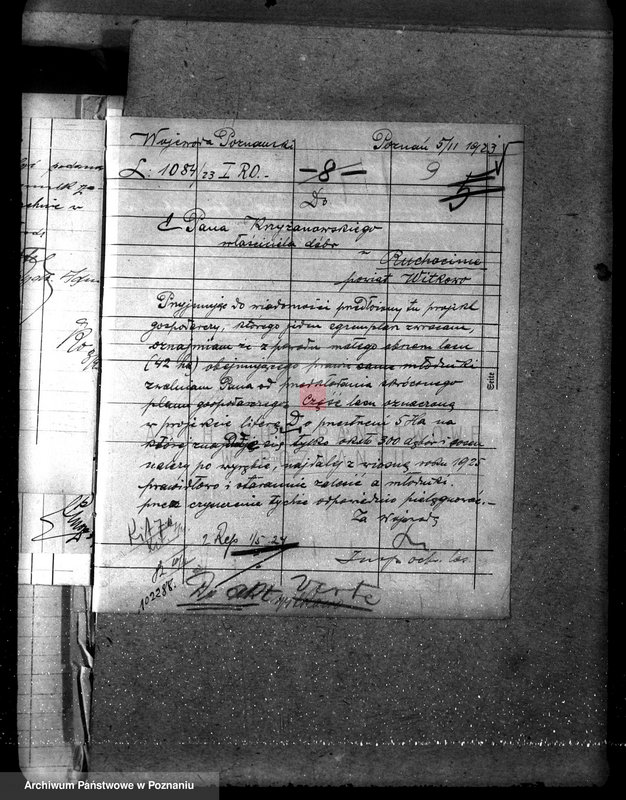 Wojewoda Poznański
Poznań 5/II 1923
L: 1084/23 I RO.-
-8-
9
5
Do
Pana Krzyżanowskiego
właściciela dóbr
Ruchocinie
powiat Witkowo
Przyjmując do wiadomości przedłożony tu projekt
gospodarczy, którego jeden egzemplarz zwracam,
oznajmiam że z powodu małego obszaru lasu
(42 ha) obejmującego prawie same młodniki
zwalniam Pana od przedłożenia skróconego
planu gospodarczego. Część lasu oznaczoną
w projekcie literą D. o przestrzeni 5 Ha na
której znajduje się tylko około 300 dębów i sosen
należy po wyrębie, najdalej z wiosną roku 1925
prawidłowo i starannie zalesić a młodniki
przez czyszczenie tychże odpowiednio pielęgnować.-
Za Wojewodę
Insp. och. las.
2 Rep 1/5.24
102288.
Do akt
Verte
Seite
Archiwum Państwowe w Poznaniu